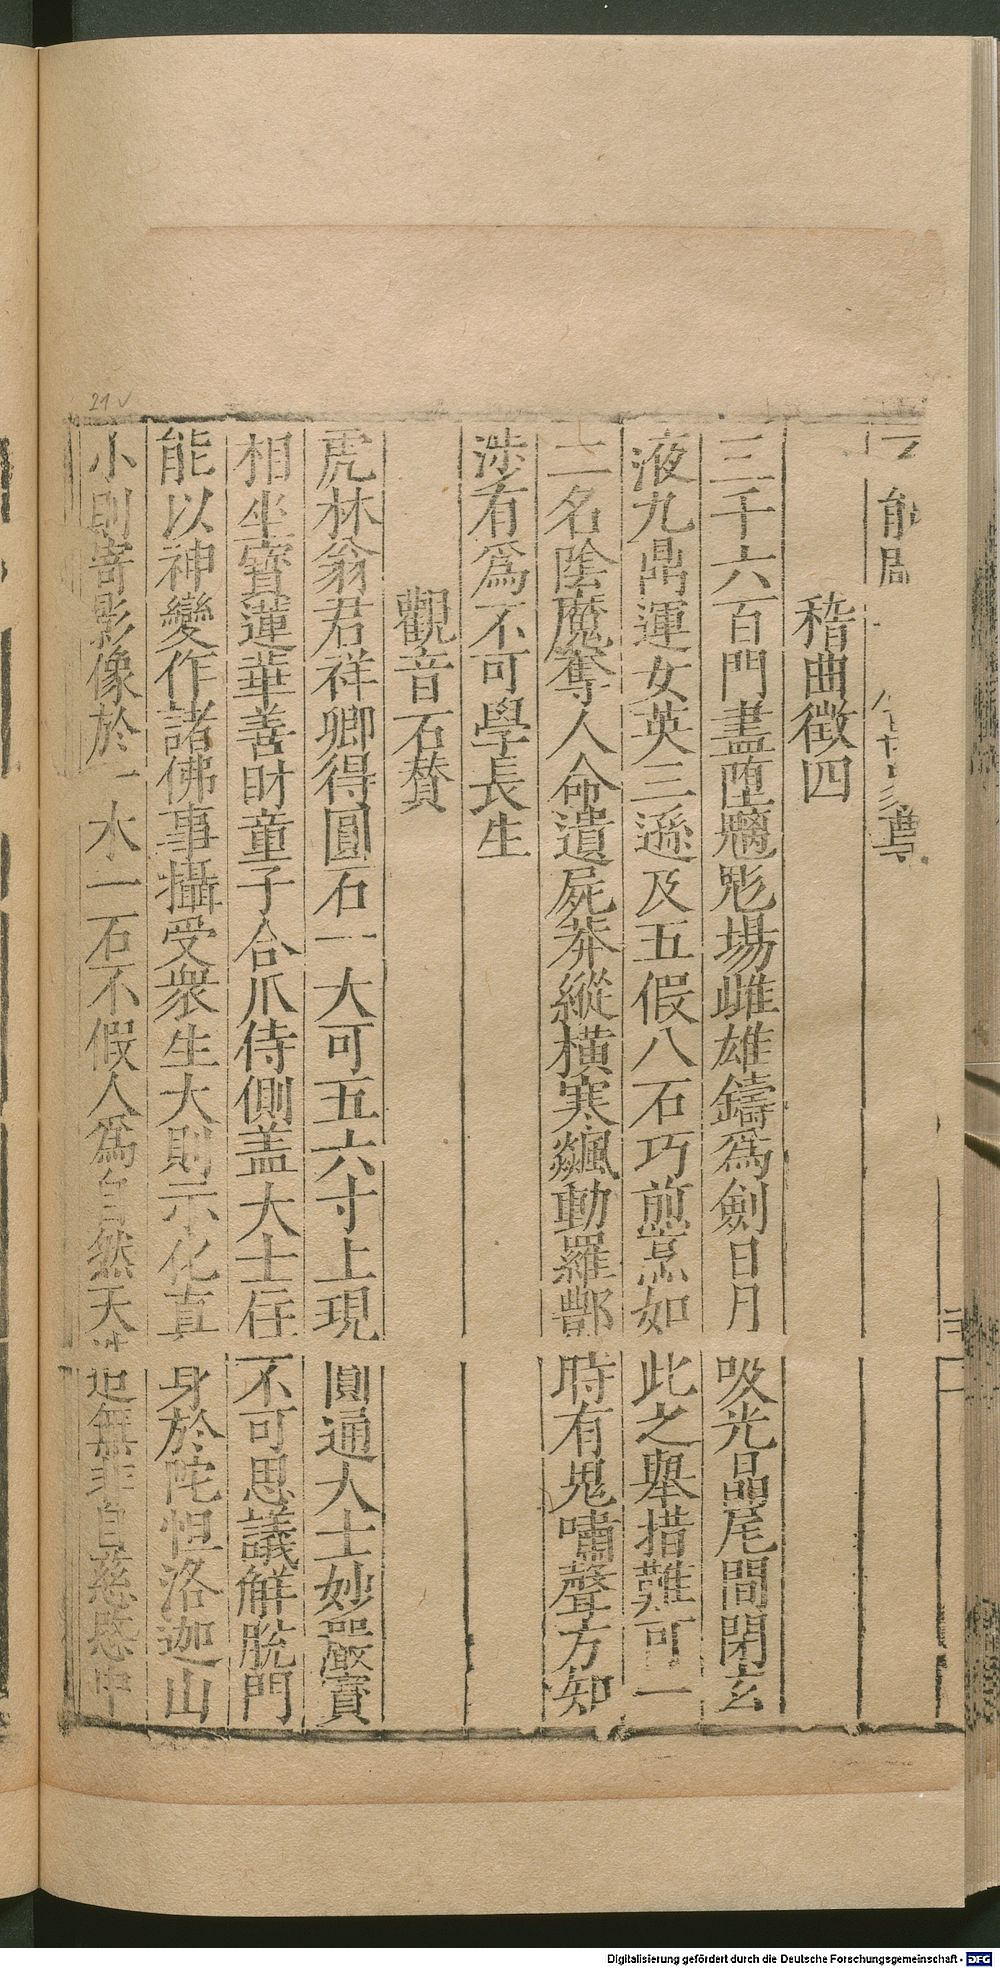 稽曲徵四
三千六百門盡墮魑魅場雌雄鑄爲劍日月吸光晶尾閭閉玄
液九鼎運女英三遜及五假八石巧煎烹如此之舉措難可一
二名陰魔奪人命遺屍莽縱橫寒飈動羅酆時有鬼嘯聲方知
涉有爲不可學長生
觀音石賛
虎林翁君祥卿得圓石一大可五六寸上現圓通大士妙嚴寶
相坐寶蓮華善財童子合爪侍側盖大士住不可思議解脫門
能以神變作諸佛事攝受衆生大則示化真身於陀怛洛迦山
小則寄影像於一水一石不假人爲自然天造無非自慈愍中
21v
Digitalisierung gefördert durch die Deutsche Forschungsgemeinschaft - DFG